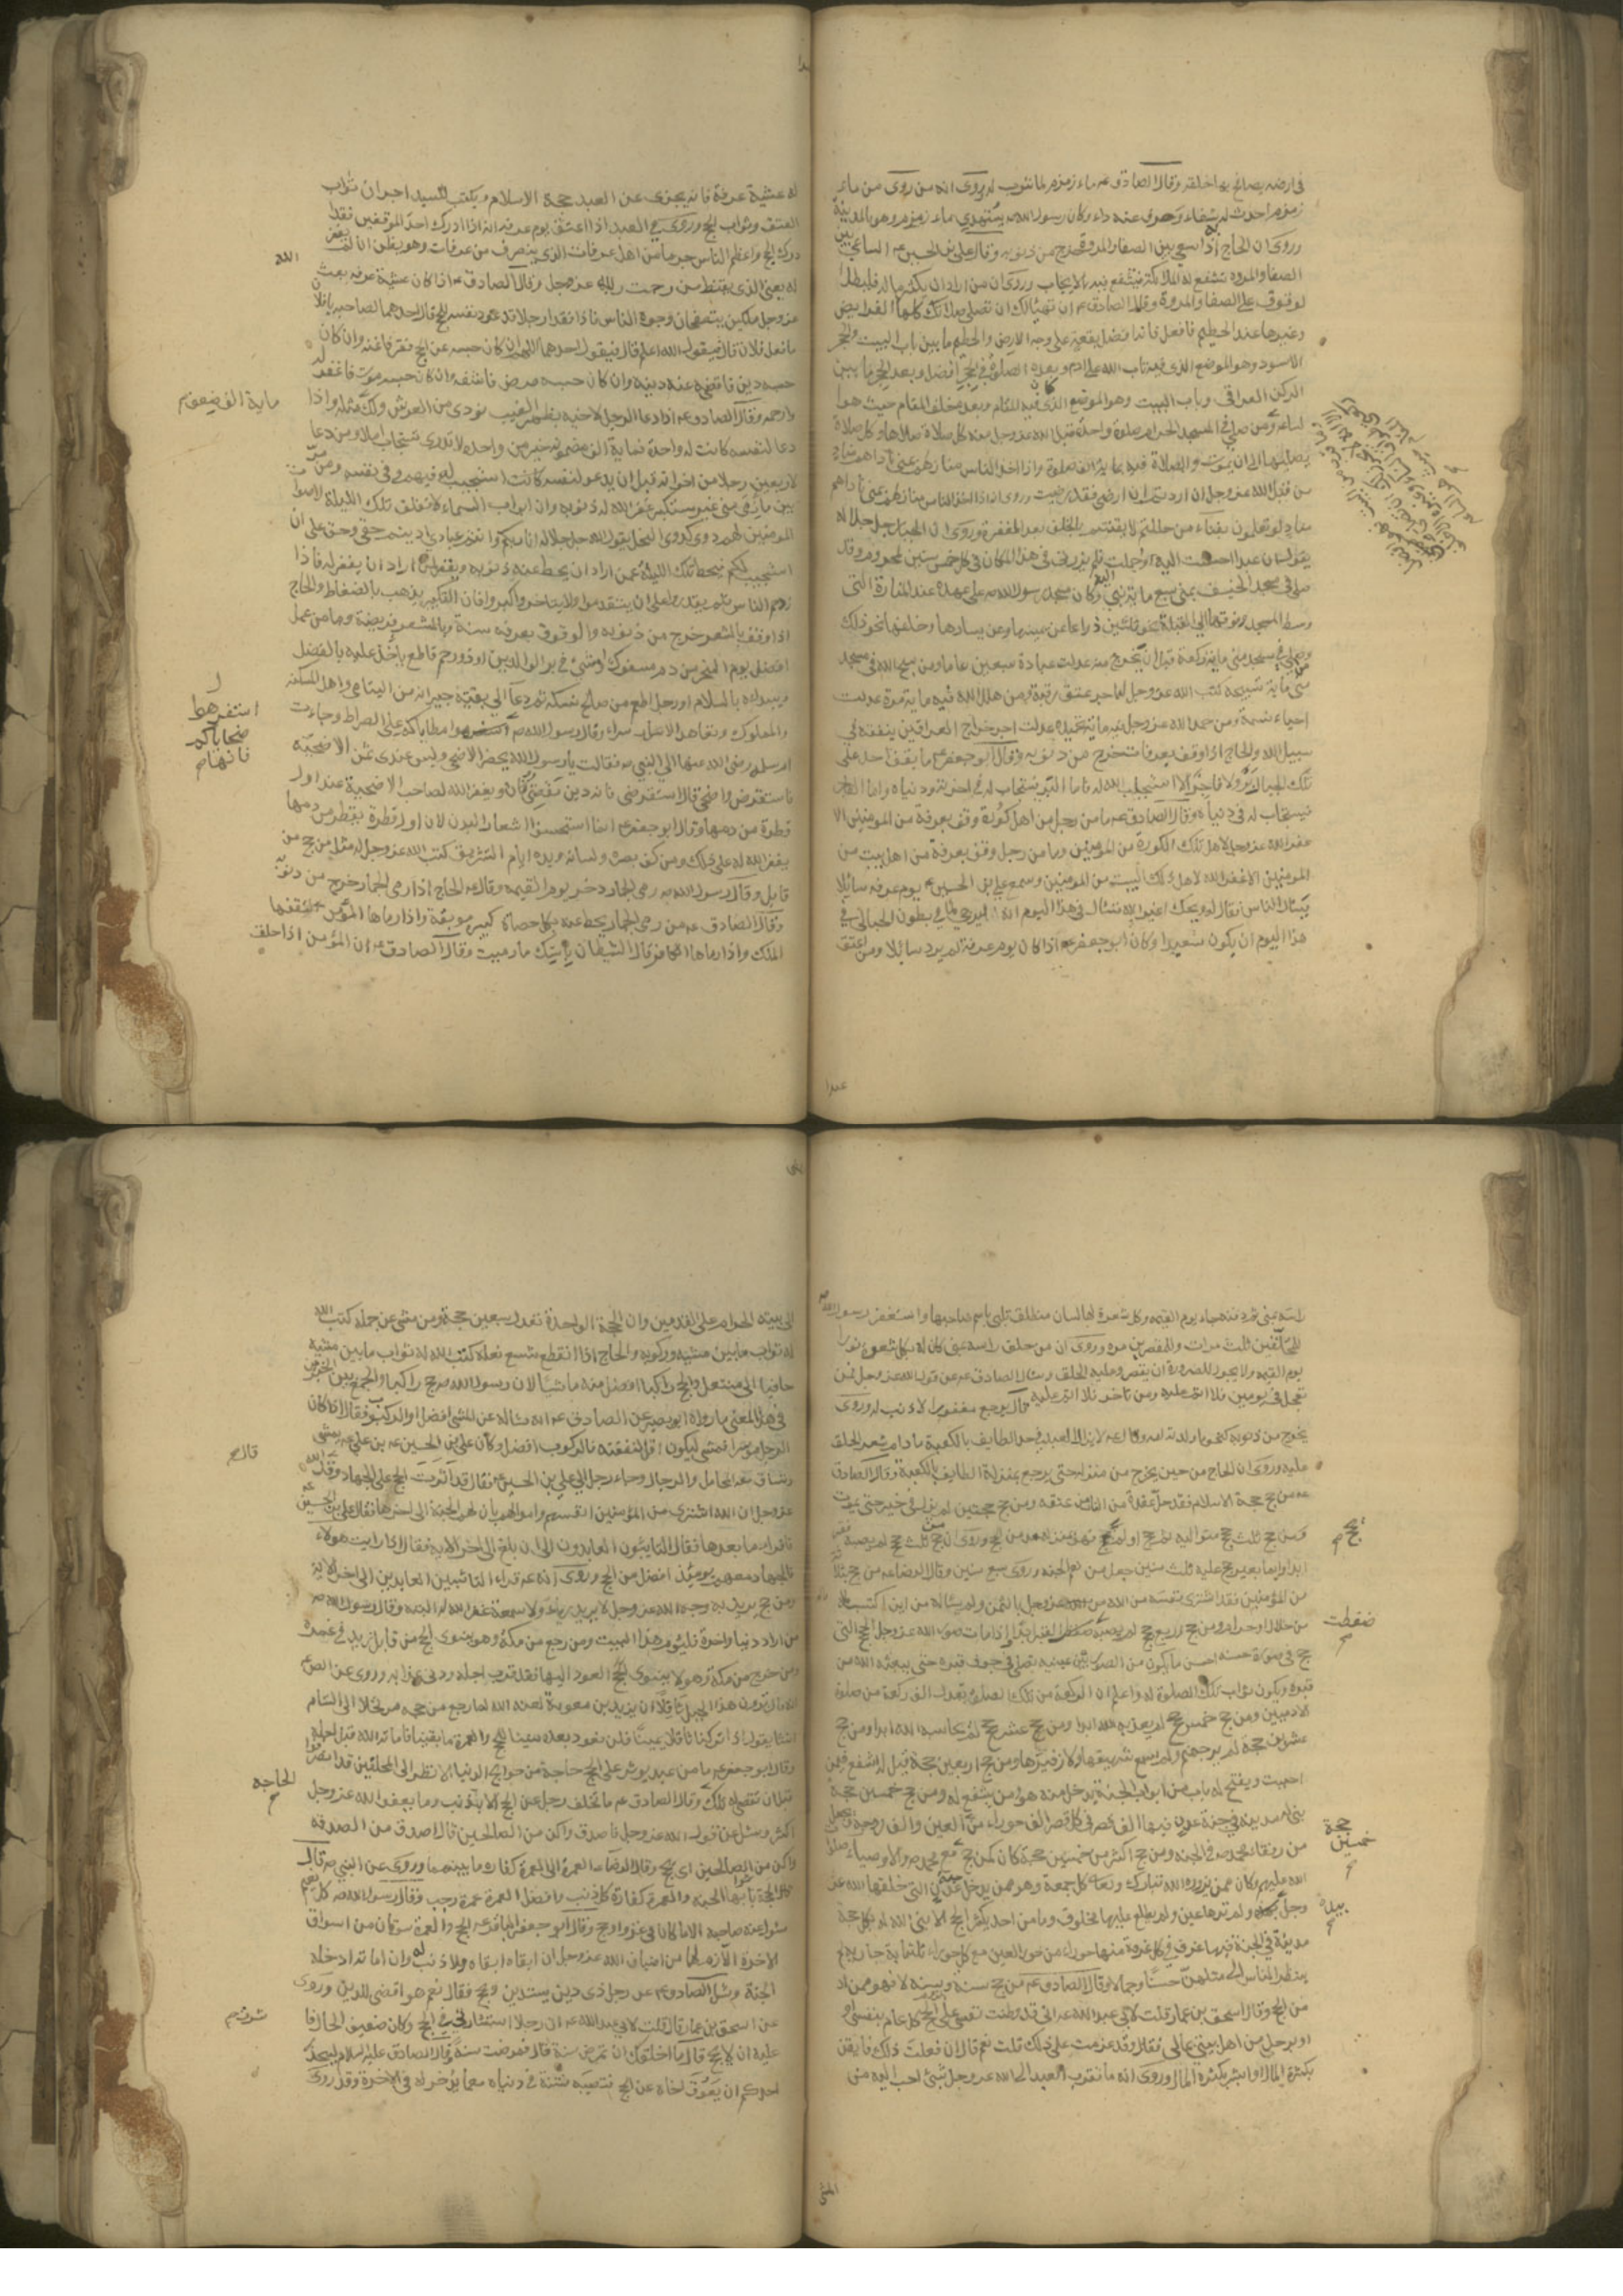 في ارضه يصافح بها خلقه وقال الصادق عه ماء زمزم لما شرب له وروى انه من روى من ماء
زمزم احدث له شفاء وصرف عنه داء وكان رسول الله صه يستهدي ماء زمزم وهو بالمدينة
وروى ان الحاج اذا سعى بين الصفا والمروة خرج من ذنوبه وقال علي بن الحسين عه الساعي بين
الصفا والمروة تشفع له الملائكة فتشفع فيه بالايجاب وروى ان من اراد ان يكثر ماله فليطل
الوقوف على الصفا والمروة وقال الصادق عه ان تهيأ لك ان تصلي صلاتك كلها الفرايض
وغيرها عند الحطيم فافعل فانه افضل بقعة على وجه الارض والحطيم ما بين باب البيت والحجر
الاسود وهو الموضع الذي فيه تاب الله على ادم وبعده الصلوة في الحجر افضل وبعد الحجر ما بين
الركن العراقي وباب البيت وهو الموضع الذي كان فيه المقام وبعده خلف المقام حيث هو
الساعة ومن صلى في المسجد الحرام صلوة واحدة قبل الله عز وجل منه كل صلاة صلاها وكل صلاة
يصليها الى ان يموت والصلاة فيه بماية الف صلوة واذا اخذ الناس منازلهم بمنى ناداهم مناد
من قبل الله عز وجل ان اردتم ان ارضى فقد رضيت وروى اذا اخذ الناس منازلهم بمنى ناداهم
مناد لو تعلمون بفناء من حللتم لايقنتم بالخلف بعد المغفرة وروى ان الجبار جل جلاله
يقول ان عبدا احسنت اليه واجملت فلم يزرني في هذا المكان في كل خمس سنين لمحروم وقد
صلى في مسجد الخيف بمنى سبع ماية نبي وكان مسجد رسول الله صه على عهده عند المنارة التي
وسط المسجد وفوقها الى القبلة نحو ثلثين ذراعا عن يمينها وعن يسارها وخلفها نحو ذلك
ومن صلى في مسجد منى ماية ركعة قبل ان يخرج منه عدلت عبادة سبعين عاما ومن سبح الله في مسجد
منى ماية تسبيحة كتب الله عز وجل له اجر عتق رقبة ومن هلل الله فيه ماية مرة عدلت
احياء نسمة ومن حمد الله عز وجل فيه ماية تحميدة عدلت اجر خراج العراقين ينفقه في
سبيل الله والحاج اذا وقف بعرفات خرج من ذنوبه وقال ابو جعفر عه ما يقف احد على
تلك الجبال بر ولا فاجر الا استجاب الله له فاما البر فيستجاب له في اخرته ودنياه واما الفاجر
فيستجاب له في دنياه وقال الصادق عه ما من رجل من اهل كورة وقف بعرفة من المؤمنين الا
غفر الله عز وجل لاهل تلك الكورة من المؤمنين وما من رجل وقف بعرفة من اهل بيت من
المؤمنين الا غفر الله لاهل ذلك البيت من المؤمنين وسمع علي بن الحسين عه يوم عرفة سائلا
يسأل الناس فقال له ويحك اغير الله تسأل في هذا اليوم انه ليرجى لما في بطون الحبالى في
هذا اليوم ان يكون سعيدا وكان ابو جعفر عه اذا كان يوم عرفة لم يرد سائلا ومن اعتق
عبدا
له عشية عرفة فانه يجزى عن العبد حجة الاسلام ويكتب للسيد اجران ثواب
العتق وثواب الحج وروى في العبد اذا اعتق يوم عرفة انه اذا ادرك احد الموقفين فقد
ادرك الحج واعظم الناس جرما من اهل عرفات الذي ينصرف من عرفات وهو يظن ان لن يغفر
الله
له يعني الذي يقنط من رحمت الله عز وجل وقال الصادق عه اذا كان عشية عرفة بعث
عز وجل ملكين يتصفحان وجوه الناس فاذا فقدا رجلا قد عود نفسه الحج قال احدهما لصاحبه يا فلان
ما فعل فلان قال فيقول الله اعلم قال فيقول احدهما اللهم ان كان حبسه عن الحج فقر فاغنه وان كان
حبسه دين فاقض عنه دينه وان كان حبسه مرض فاشفه وان كان حبسه موت فاغفر له
وارحمه وقال الصادق عه اذا دعا الرجل لاخيه بظهر الغيب نودي من العرش ولك مثله واذا
ماية الف ضعف م
دعا لنفسه كانت له واحدة فماية الف مضمونة خير من واحدة لا تدري تستجاب ام لا ومن دعا
لاربعين رجلا من اخوانه قبل ان يدعو لنفسه كانت استجيب له فيهم وفي نفسه ومن مر
بين مأزمي منى غير مستكبر غفر الله له ذنوبه وان ابواب السماء لا تغلق تلك الليلة لاصوات
المؤمنين لهم دوي كدوي النحل يقول الله جل جلاله انا ربكم وانتم عبادي اديتم حقي وحق علي ان
استجيب لكم فيحط تلك الليلة عمن اراد ان يحط عنه ذنوبه ويغفر لمن اراد ان يغفر له فاذا
ازدحم الناس فلم يقدروا على ان يتقدموا ولا يتاخروا كبروا فان التكبير يذهب بالضغاط والحاج
اذا وقف بالمشعر خرج من ذنوبه والوقوف بعرفة سنة وبالمشعر فريضة وما من عمل
افضل يوم النحر من دم مسفوك او مشي في بر الوالدين او ذو رحم قاطع ياخذ عليه بالفضل
ويبدأه بالسلام او رجل اطعم من صالح نسكه ثم دعا الى بقيته جيرانه من اليتامى واهل المسكنة
والمملوك وتعاهد الاسراء وقال رسول الله صه استفرهوا ضحاياكم مطاياكم على الصراط وجاءت
استفرهوا
ضحاياكم
فانها م
ام سلمه رضي الله عنها الى النبي صه فقالت يا رسول الله يحضر الاضحى وليس عندي ثمن الاضحية
فاستقرض واضحي قال استقرضي فانه دين مقضي ويغفر الله لصاحب الاضحية عند اول
قطرة من دمها وقال ابو جعفر عه انما استحسنوا اشعار البدن لان اول قطرة تقطر من دمها
يغفر الله له على ذلك ومن كف بصره ولسانه ويده ايام التشريق كتب الله عز وجل له مثل من حج من
قابل وقال رسول الله صه رمي الجمار ذخر يوم القيمة وقال عه الحاج اذا رمى الجمار خرج من ذنوبه
وقال الصادق عه من رمى الجمار يحط عنه بكل حصاة كبيرة موبقة واذا رماها المؤمن التقفها
الملك واذا رماها الكافر قال الشيطان باستك ما رميت وقال الصادق عه ان المؤمن اذا حلق
راسه بمنى ثم دفنه جاء يوم القيمه وكل شعرة لها لسان مطلق تلبي باسم صاحبها واستغفر رسول الله صه
للمحلقين ثلث مرات وللمقصرين مرة وروى ان من حلق راسه بمنى كان له بكل شعرة نورا
يوم القيمه ولا يجوز للصرورة ان يقصر وعليه الحلق وسئل الصادق عه عن قول الله عز وجل فمن
تعجل في يومين فلا اثم عليه ومن تاخر فلا اثم عليه قال يرجع مغفورا لا ذنب له وروى
يخرج من ذنوبه كنحو ما ولدته امه وقال عه لا يزال العبد في حد الطائف بالكعبة ما دام شعر الحلق
عليه وروى ان الحاج من حين يخرج من منزله حتى يرجع بمنزلة الطايف بالكعبة وقال الصادق
عه من حج حجة الاسلام فقد حل عقدة من النار من عنقه ومن حج حجتين لم يزل في خير حتى يموت
ومن حج ثلث حجج متوالية ثم حج او لم يحج فهو بمنزلة مدمن الحج وروى ان من حج ثلث حجج لم يصبه فقر
يحج م
ابدا وايما بعير حج عليه ثلث سنين جعل من نعم الجنة وروى سبع سنين وقال الرضا عه من حج بثلاثة
من المؤمنين فقد اشترى نفسه من الله عز وجل بالثمن ولم يساله من اين اكتسب ماله
من حلال او حرام ومن حج اربع حجج لم يصبه ضغطة القبر ابدا واذا مات صور الله عز وجل الحج التي
ضغطت
م
حج في صورة حسنة احسن ما يكون من الصور بين عينيه تصلي في جوف قبره حتى يبعثه الله من
قبره ويكون ثواب تلك الصلوة له واعلم ان الركعة من تلك الصلوة تعدل الف ركعة من صلوة
الادميين ومن حج خمس حجج لم يعذبه الله ابدا ومن حج عشر حجج لم يحاسبه الله ابدا ومن حج
عشرين حجة لم ير جهنم ولم يسمع شهيقها ولا زفيرها ومن حج اربعين حجة قيل له اشفع فيمن
احببت ويفتح له باب من ابواب الجنة يدخل منه هو ومن يشفع له ومن حج خمسين حجة
بنى له مدينة في جنة عدن فيها الف قصر في كل قصر الف حوراء من الحور العين والف زوجة ويجعل
من رفقاء محمد صه في الجنة ومن حج اكثر من خمسين حجة كان كمن حج مع محمد والاوصياء صلوات
حجة
خمسين
م
الله عليهم وكان ممن يزوره الله تبارك وتعالى كل جمعة وهو ممن يدخل جنة عدن التي خلقها الله عز
وجل بيده ولم ترها عين ولم يطلع عليها مخلوق وما من احد يكثر الحج الا بنى الله له بكل حجة
بيده
م
مدينة في الجنة فيها غرف في كل غرفة منها حوراء من حور العين مع كل حوراء ثلثماية جارية لم
ينظر الناس الى مثلهن حسنا وجمالا وقال الصادق عه من حج سنة وسنة لا فهو ممن ادمن
من الحج وقال اسحق بن عمار قلت لابي عبد الله عه اني قد وطنت نفسي على لزوم الحج كل عام بنفسي او
او برجل من اهل بيتي بمالي فقال وقد عزمت على ذلك قلت نعم قال ان فعلت ذلك فايقن
بكثرة المال او ابشر بكثرة المال وروى انه ما تقرب العبد الى الله عز وجل بشئ احب اليه من
المشي
الى بيته الحرام على القدمين وان الحجة الواحدة تعدل سبعين حجة ومن مشى عن جمله كتب الله
له ثواب ما بين مشيه وركوبه والحاج اذا انقطع شسع نعله كتب الله له ثواب ما بين مشيه
حافيا الى منتعل والحج راكبا افضل منه ماشيا لان رسول الله صه حج راكبا والجمع بين الخبرين
في هذا المعنى ما رواه ابو بصير عن الصادق عه انه سأله عن المشي افضل او الركوب فقال اذا كان
الرجل موسرا فمشى ليكون اقل لنفقته فالركوب افضل وكان علي بن الحسين عه يمشي
وتساق معه المحامل والرحال وجاء رجل الى علي بن الحسين عه فقال قد اثرت الحج على الجهاد وقد قال الله
قال م
عز وجل ان الله اشترى من المؤمنين انفسهم واموالهم بان لهم الجنة الى اخرها فقال علي بن الحسين عه
فاقرأ ما بعدها فقال التايبون العابدون الى ان بلغ الى اخر الاية فقال اذا رايت هولاء
فالجهاد معهم يومئذ افضل من الحج وروى انه عه قراء التائبين العابدين الى اخر الاية
ومن حج يريد به وجه الله عز وجل لا يريد به رياء ولا سمعة غفر الله له البتة وقال رسول الله صه
من اراد دنيا واخرة فليؤم هذا البيت ومن رجع من مكة وهو ينوي الحج من قابل زيد في عمره
ومن خرج من مكة وهو لا ينوي العود اليها فقد قرب اجله ودنى عذابه وروى عن الصادق
انه قال ترون هذا الجبل ثافلا ان يزيد بن معوية لعنه الله لما رجع من حجه مرتحلا الى الشام
انشا يقول اذا تركنا ثافلا يمينا فلن نعود بعده سنينا للحج والعمرة ما بقينا فاماته الله قبل اجله
وقال ابو جعفر عه ما من عبد يوثر على الحج حاجة من حوايج الدنيا الا نظر الى المحلقين قد انصرفوا
قبل ان تقضى له تلك وقال الصادق عه ما تخلف رجل عن الحج الا بذنب وما يعفو الله عز وجل
الحاجه
م
اكثر وسئل عن قول الله عز وجل فاصدق واكن من الصالحين قال اصدق من الصدقة
واكن من الصالحين اي احج وقال الرضا عه العمرة الى العمرة كفارة ما بينهما وروى عن النبي صه قال
الحجة ثوابها الجنة والعمرة كفارة كل ذنب وافضل العمرة عمرة رجب وقال رسول الله صه كل نعيم
مسئول عنه صاحبه الا ما كان في غزو او حج وقال ابو جعفر الباقر عه الحج والعمرة سوقان من اسواق
الاخرة اللازم لهما من اضياف الله عز وجل ان ابقاه ابقاه ولا ذنب له وان اماته ادخله
الجنة وسئل الصادق عه عن رجل ذي دين يستدين ويحج فقال نعم هو اقضى للدين وروى
عن اسحق بن عمار قال قلت لابي عبد الله عه ان رجلا استشارني في الحج وكان ضعيف الحال فا
شرت م
عليه ان لا يحج قال ما اخلقك ان تمرض سنة قال فمرضت سنة وقال الصادق عليه السلام ليحذر
احدكم ان يعوق اخاه عن الحج فتصيبه فتنة في دنياه مع ما يؤخر له في الاخرة وقد روى